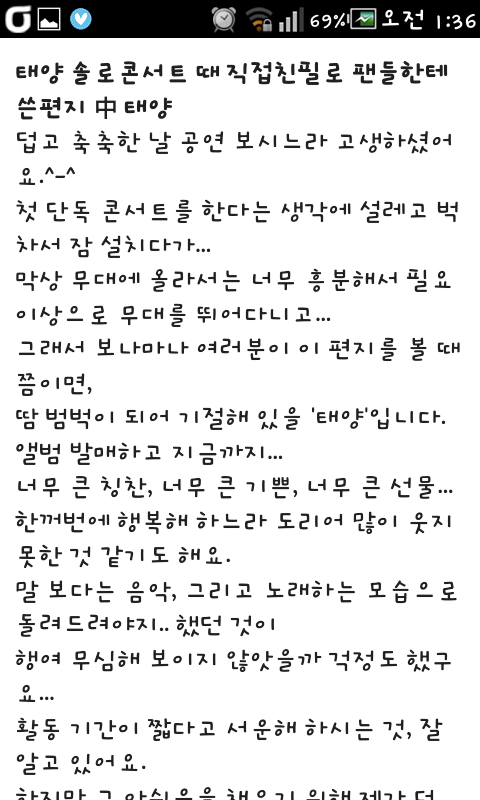 69% 오전 1:36
태양 솔로콘서트 때 직접친필로 팬들한테
쓴편지 中 태양
덥고 축축한 날 공연 보시느라 고생하셨어
요.^-^
첫 단독 콘서트를 한다는 생각에 설레고 벅
차서 잠 설치다가...
막상 무대에 올라서는 너무 흥분해서 필요
이상으로 무대를 뛰어다니고...
그래서 보나마나 여러분이 이 편지를 볼 때
쯤이면,
땀 범벅이 되어 기절해 있을 '태양'입니다.
앨범 발매하고 지금까지...
너무 큰 칭찬, 너무 큰 기쁜, 너무 큰 선물...
한꺼번에 행복해 하느라 도리어 많이 웃지
못한 것 같기도 해요.
말 보다는 음악, 그리고 노래하는 모습으로
돌려드려야지.. 했던 것이
행여 무심해 보이지 않앗을까 걱정도 했구
요...
활동 기간이 짧다고 서운해 하시는 것, 잘
알고 있어요.
하지만 그 아쉬움을 채우기 위해 제가 더